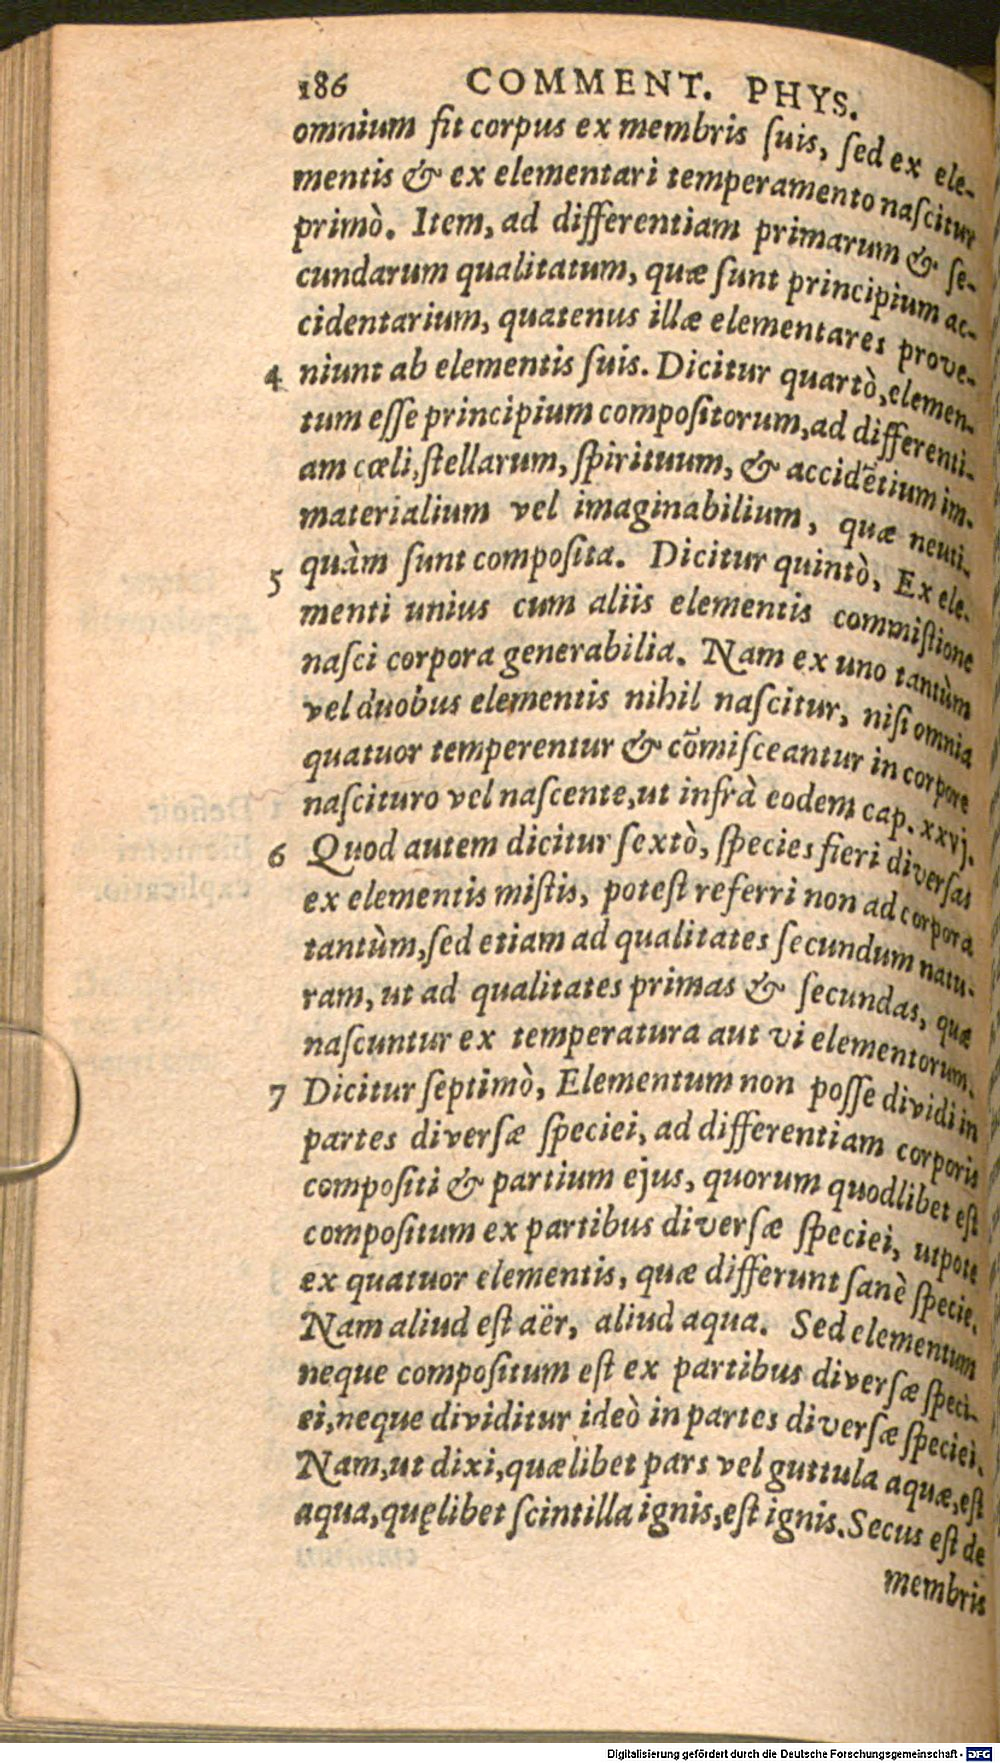 186 COMMENT. PHYS.
omnium fit corpus ex membris ſuis, ſed ex ele-
mentis & ex elementari temperamento naſcitur
primò. Item, ad differentiam primarum & ſe-
cundarum qualitatum, quæ ſunt principium ac-
cidentarium, quatenus illæ elementares prove-
4 niunt ab elementis ſuis. Dicitur quartò, elemen-
tum eſſe principium compoſitorum, ad differenti-
am cœli, ſtellarum, ſpirituum, & accidẽtium im-
materialium vel imaginabilium, quæ neuti-
quàm ſunt compoſita. Dicitur quintò, Ex ele-
5 menti unius cum aliis elementis commiſtione
naſci corpora generabilia. Nam ex uno tantùm
vel duobus elementis nihil naſcitur, niſi omnia
quatuor temperentur & cõmiſceantur in corpore
naſcituro vel naſcente, ut infrà eodem cap. xxvj.
6 Quod autem dicitur ſextò, ſpecies fieri diverſas
ex elementis miſtis, poteſt referri non ad corpora
tantùm, ſed etiam ad qualitates ſecundum natu-
ram, ut ad qualitates primas & ſecundas, quæ
naſcuntur ex temperatura aut vi elementorum.
7 Dicitur ſeptimò, Elementum non poſſe dividi in
partes diverſæ ſpeciei, ad differentiam corporis
compoſiti & partium ejus, quorum quodlibet eſt
compoſitum ex partibus diverſæ ſpeciei, utpote
ex quatuor elementis, quæ differunt ſanè ſpecie.
Nam aliud eſt aër, aliud aqua. Sed elementum
neque compoſitum eſt ex partibus diverſæ ſpeci-
ei, neque dividitur ideò in partes diverſæ ſpeciei.
Nam, ut dixi, quælibet pars vel guttula aquæ, eſt
aqua, quęlibet ſcintilla ignis, eſt ignis. Secus eſt de
membris
Digitalisierung gefördert durch die Deutsche Forschungsgemeinschaft - DFG